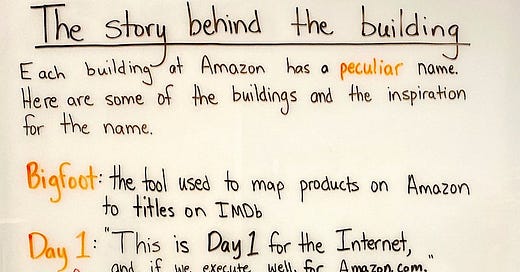 The story behind the building
Each building at Amazon has a peculiar name.
Here are some of the buildings and the inspiration
for the name.
Bigfoot: the tool used to map products on Amazon
to titles on IMDb
Day 1: "This is Day 1 for the Internet,
and if we execute well, for Amazon.com."